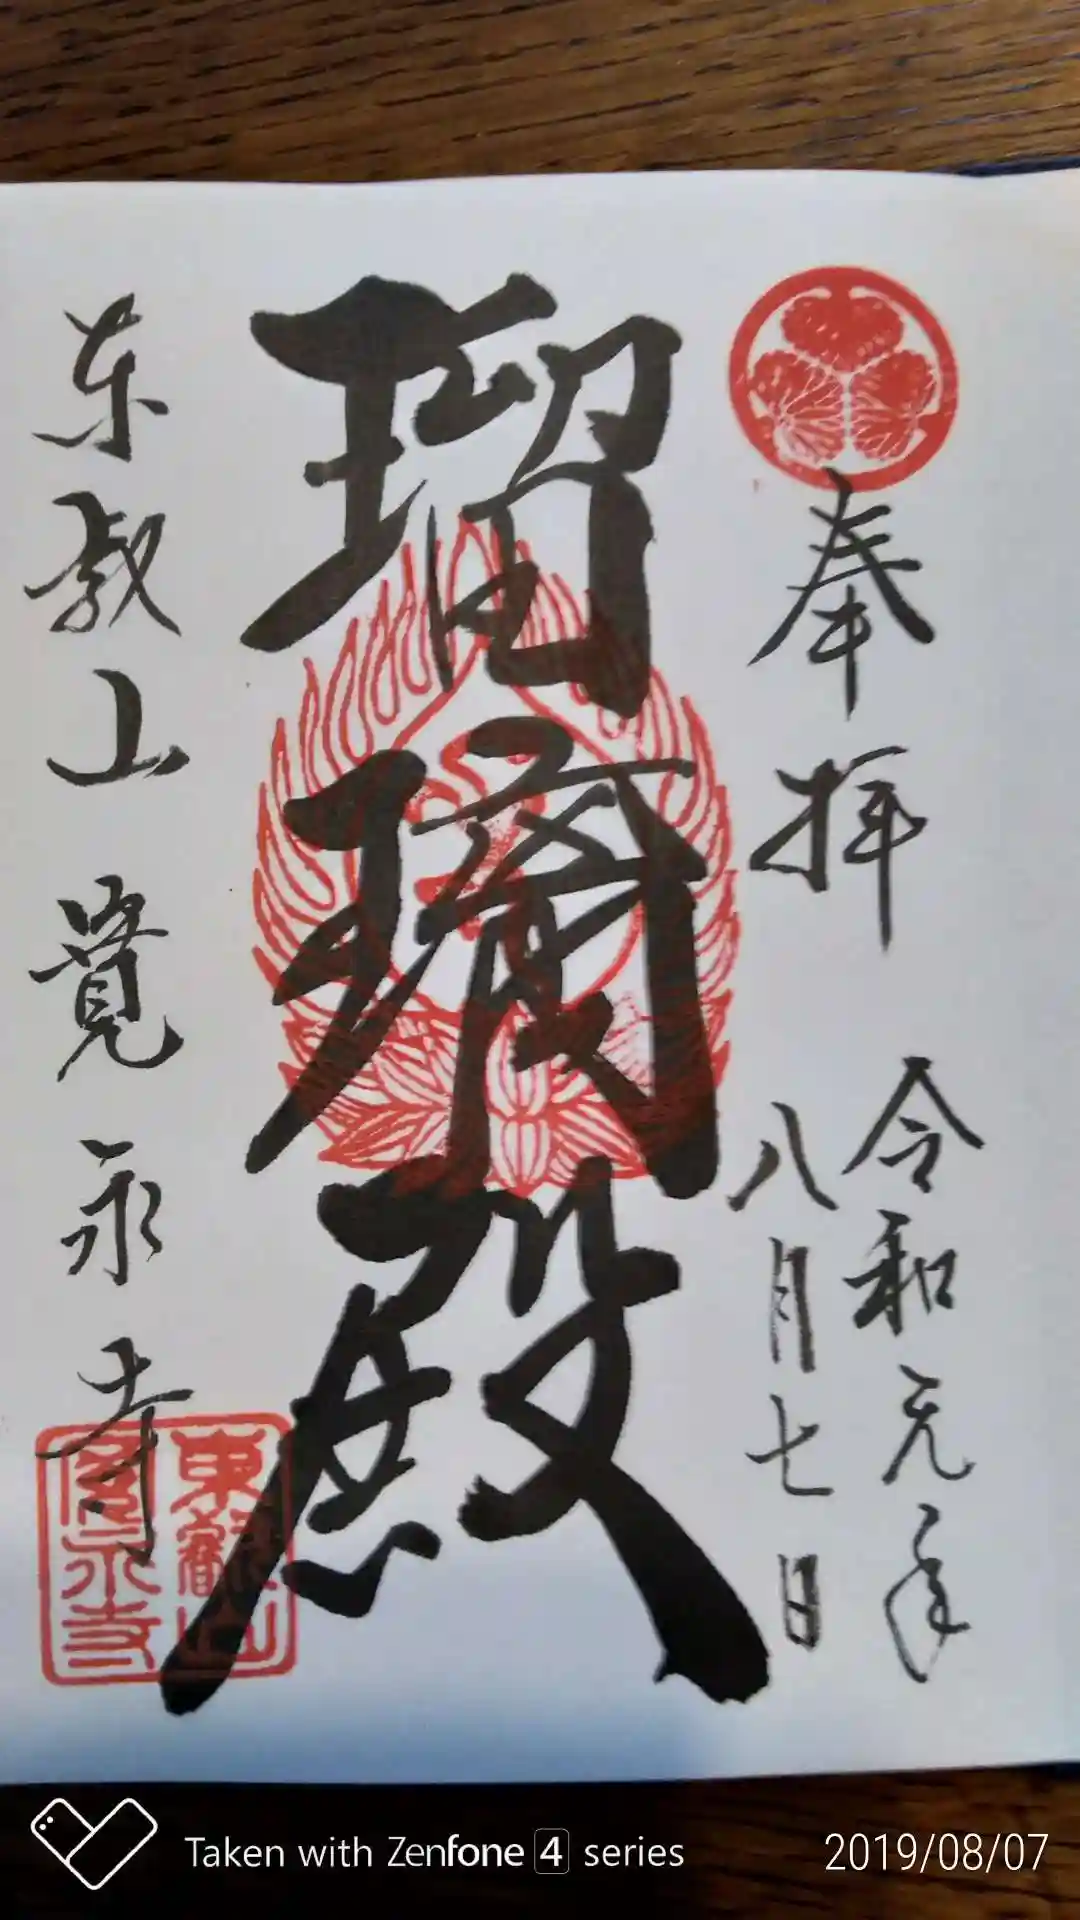 奉拝
令和元年
八月七日
瑠璃殿
东叡山 寛永寺
東叡山
寛永寺
Taken with Zenfone 4 series
2019/08/07